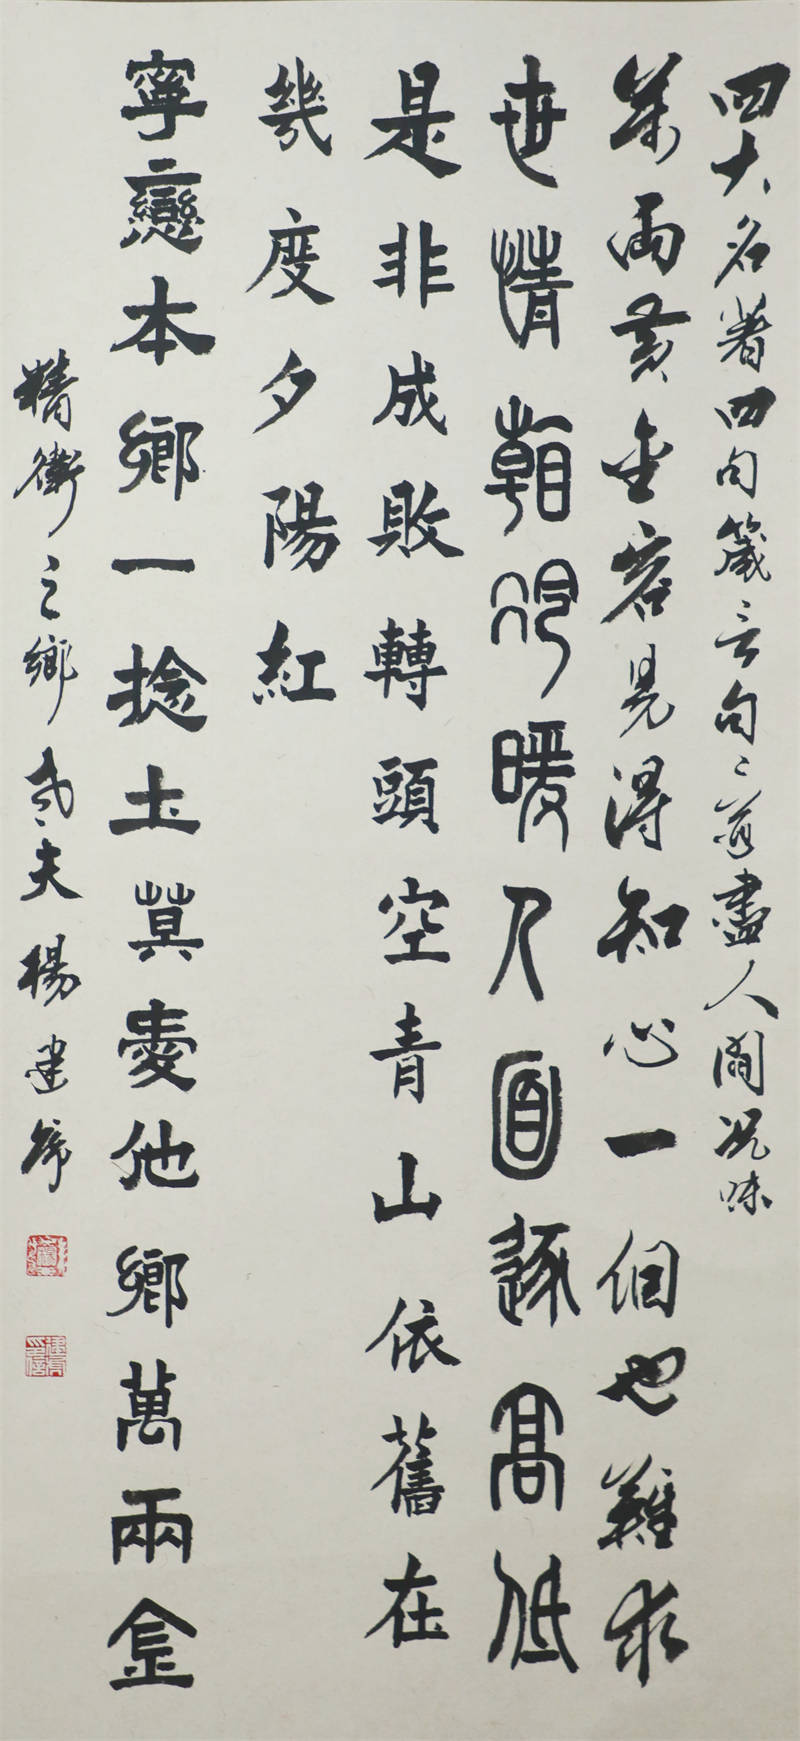 四大名著四句箴言句〻道盡人間况味
萬两黄金容易得知心一個也難求
世情看冷暖人面逐高低
是非成敗轉頭空青山依舊在
幾度夕陽紅
寧戀本鄉一捻土莫愛他鄉萬兩金
精衛之鄉武夫楊建